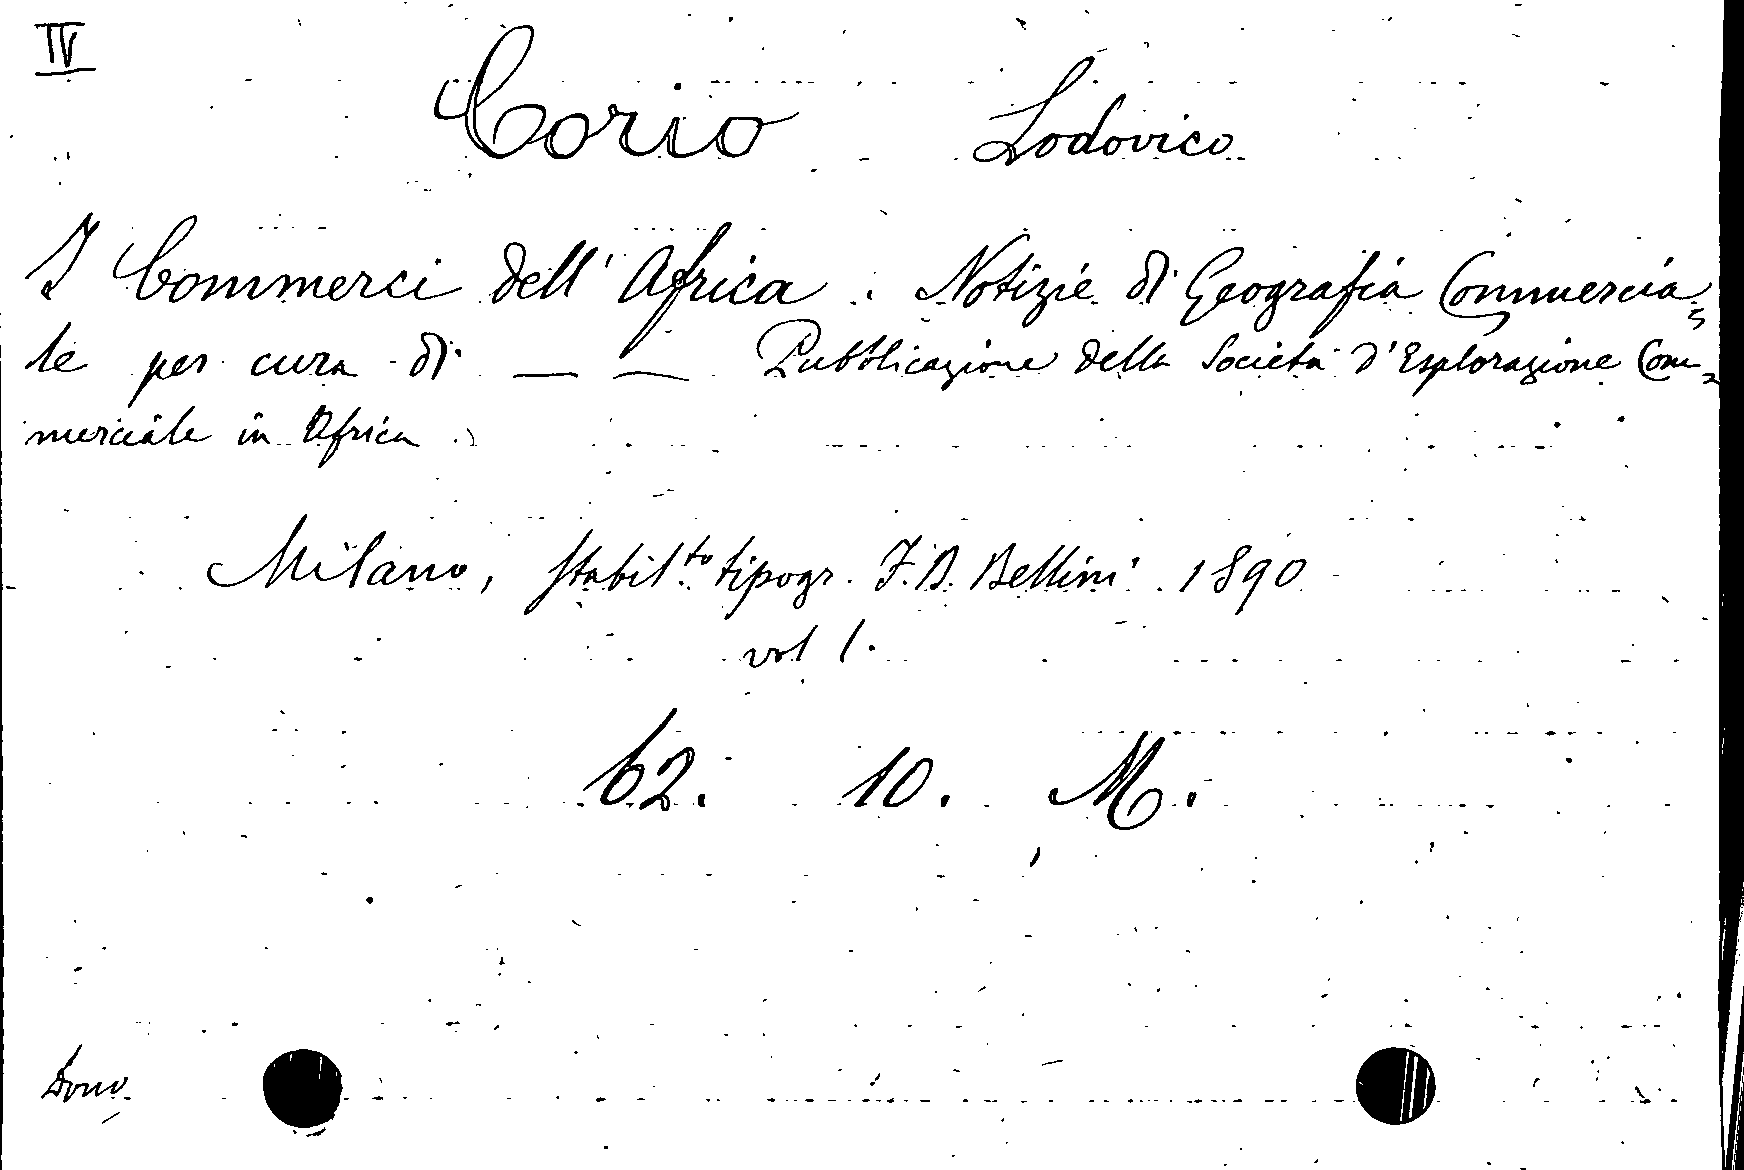 IV
Corio Lodovico
I Commerci dell' Africa. Notizie di Geografia Commercia=
le per cura di — — Pubblicazione della Società d'Esplorazione Com=
merciale in Africa.
Milano, Stabil.to tipogr. F. B. Bellini. 1890
vol 1.
62. 10. M.
Dono